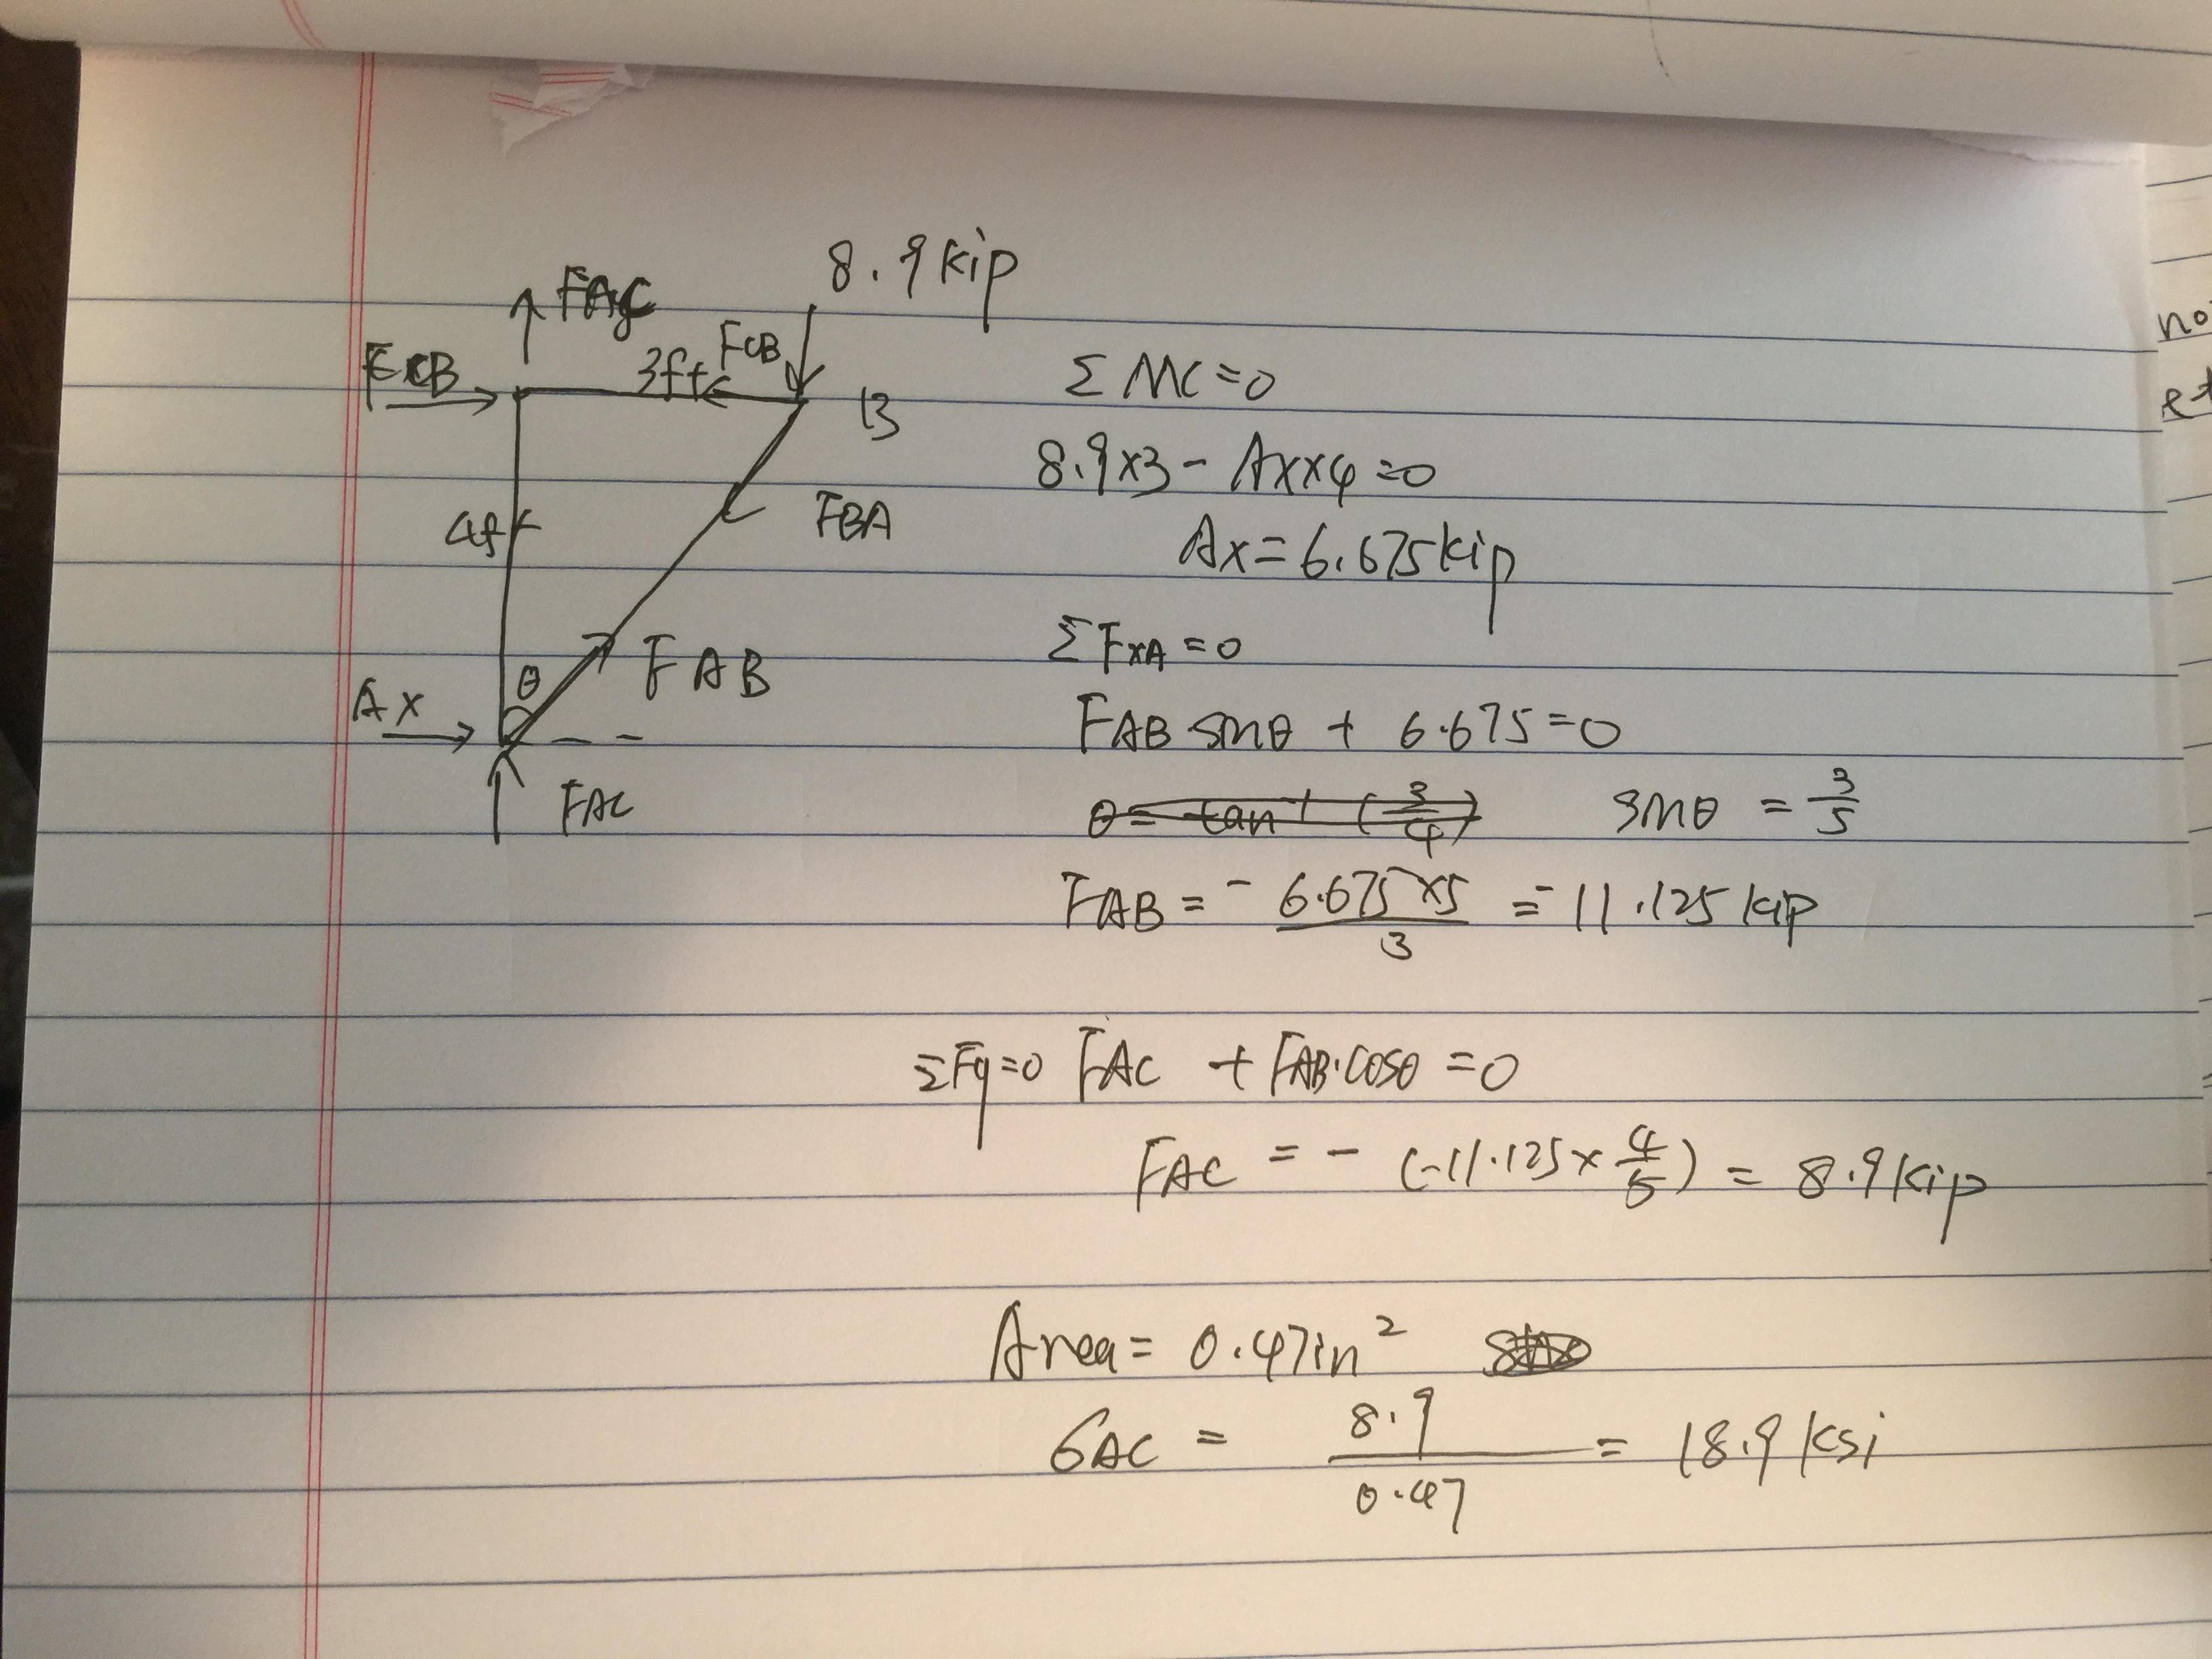 8.9 kip
FAyC
FxCB
3ft FCB
B
4ft
FBA
θ
FAB
Ax
FAC
ΣMC=0
8.9x3 - Axx4=0
Ax=6.675kip
ΣFxA=0
FAB sinθ + 6.675=0
sinθ = 3/5
FAB = - 6.675x5/3 = - 11.125 kip
ΣFy=0 FAC + FAB.cosθ =0
FAC = - (-11.125 x 4/5) = 8.9 kip
Area= 0.47in²
σAC = 8.9/0.47 = 18.9 ksi
no
et